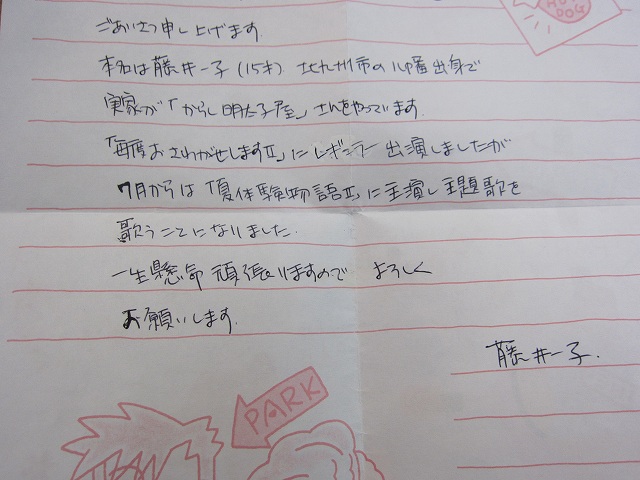 HOT DOG
ごあいさつ申し上げます.
本名は藤井一子(15才).北九州市の八幡出身で
実家が「からし明太子屋」さんをやっています.
「毎度おさわがせしますⅡ」にレギュラー出演しましたが
7月からは「夏体験物語Ⅱ」に主演し主題歌を
歌うことになりました.
一生懸命頑張りますので よろしく
お願いします.
藤井一子.
PARK